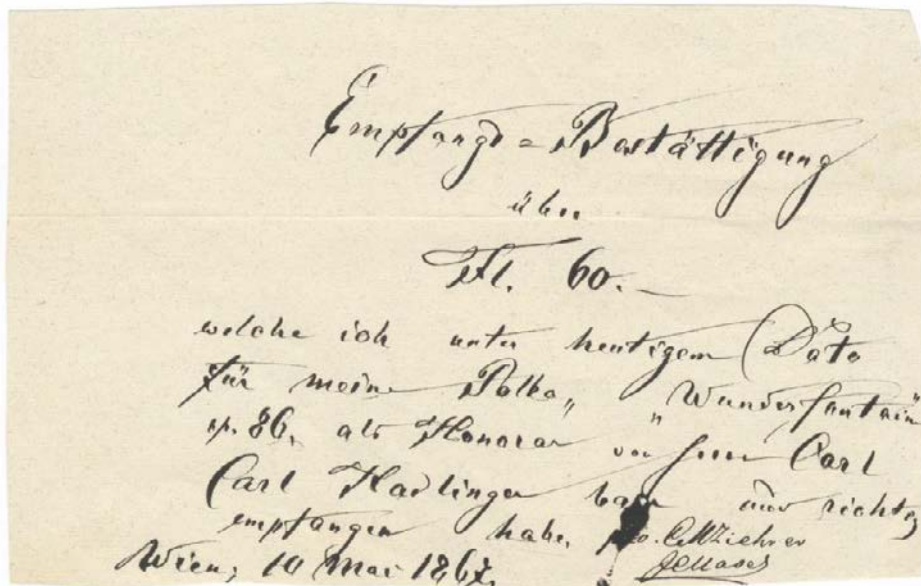 Empfangs=Bestättigung
über
Fl. 60.–
welche ich unter heutigem Dato
für meine Polka „Wunderfontain"
op. 86, als Honorar von Herrn Carl
Carl Haslinger baar und richtig
empfangen habe, pro. CMZiehrer
Wien, 10 Mai 1867.